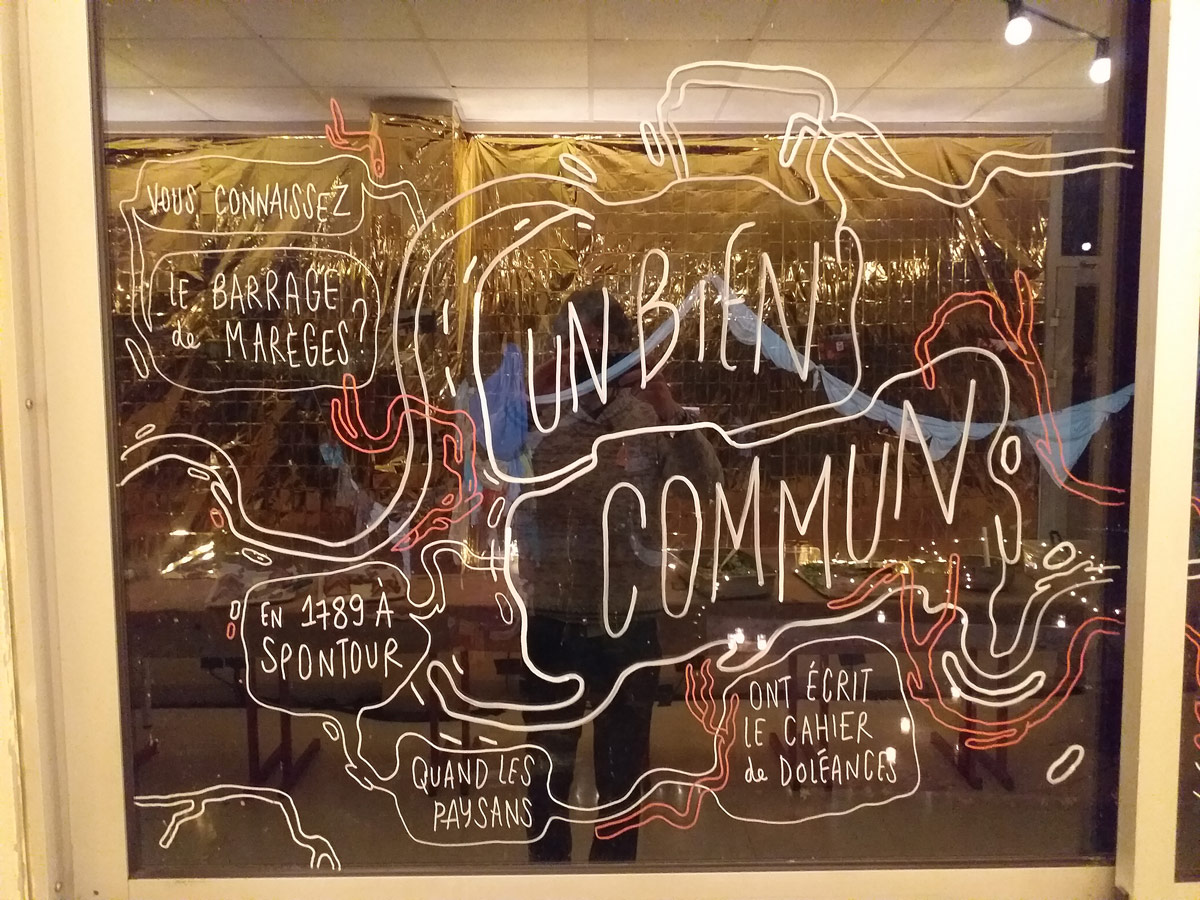 VOUS CONNAISSEZ
LE BARRAGE
de MARÈGES?
UN BIEN
COMMUN
EN 1789 À
SPONTOUR
QUAND LES
PAYSANS
ONT ÉCRIT
LE CAHIER
de DOLÉANCES